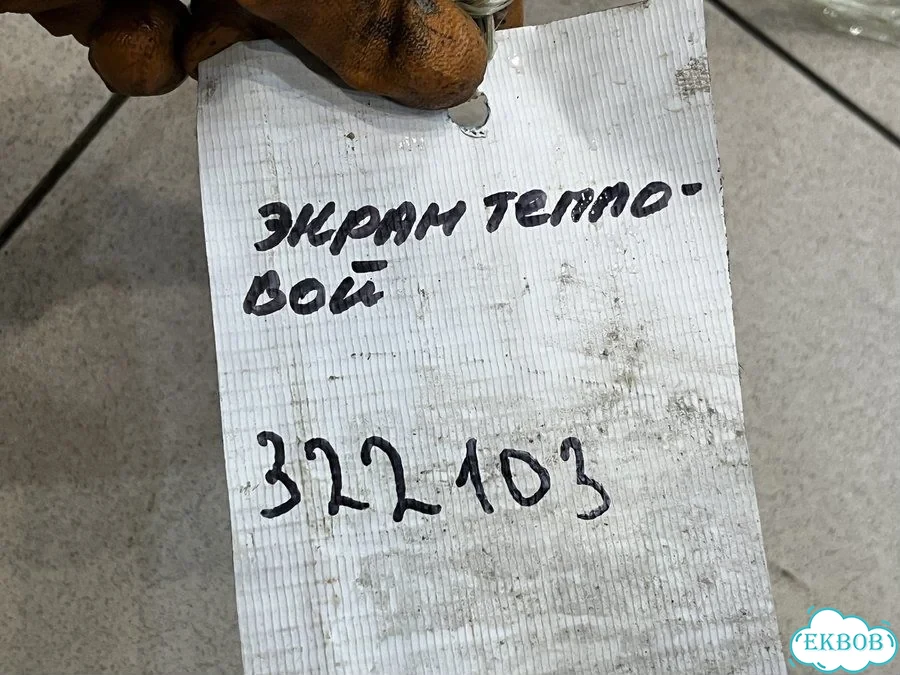 ЭКРАН ТЕПЛО-
ВОЙ
322103
EKBOB